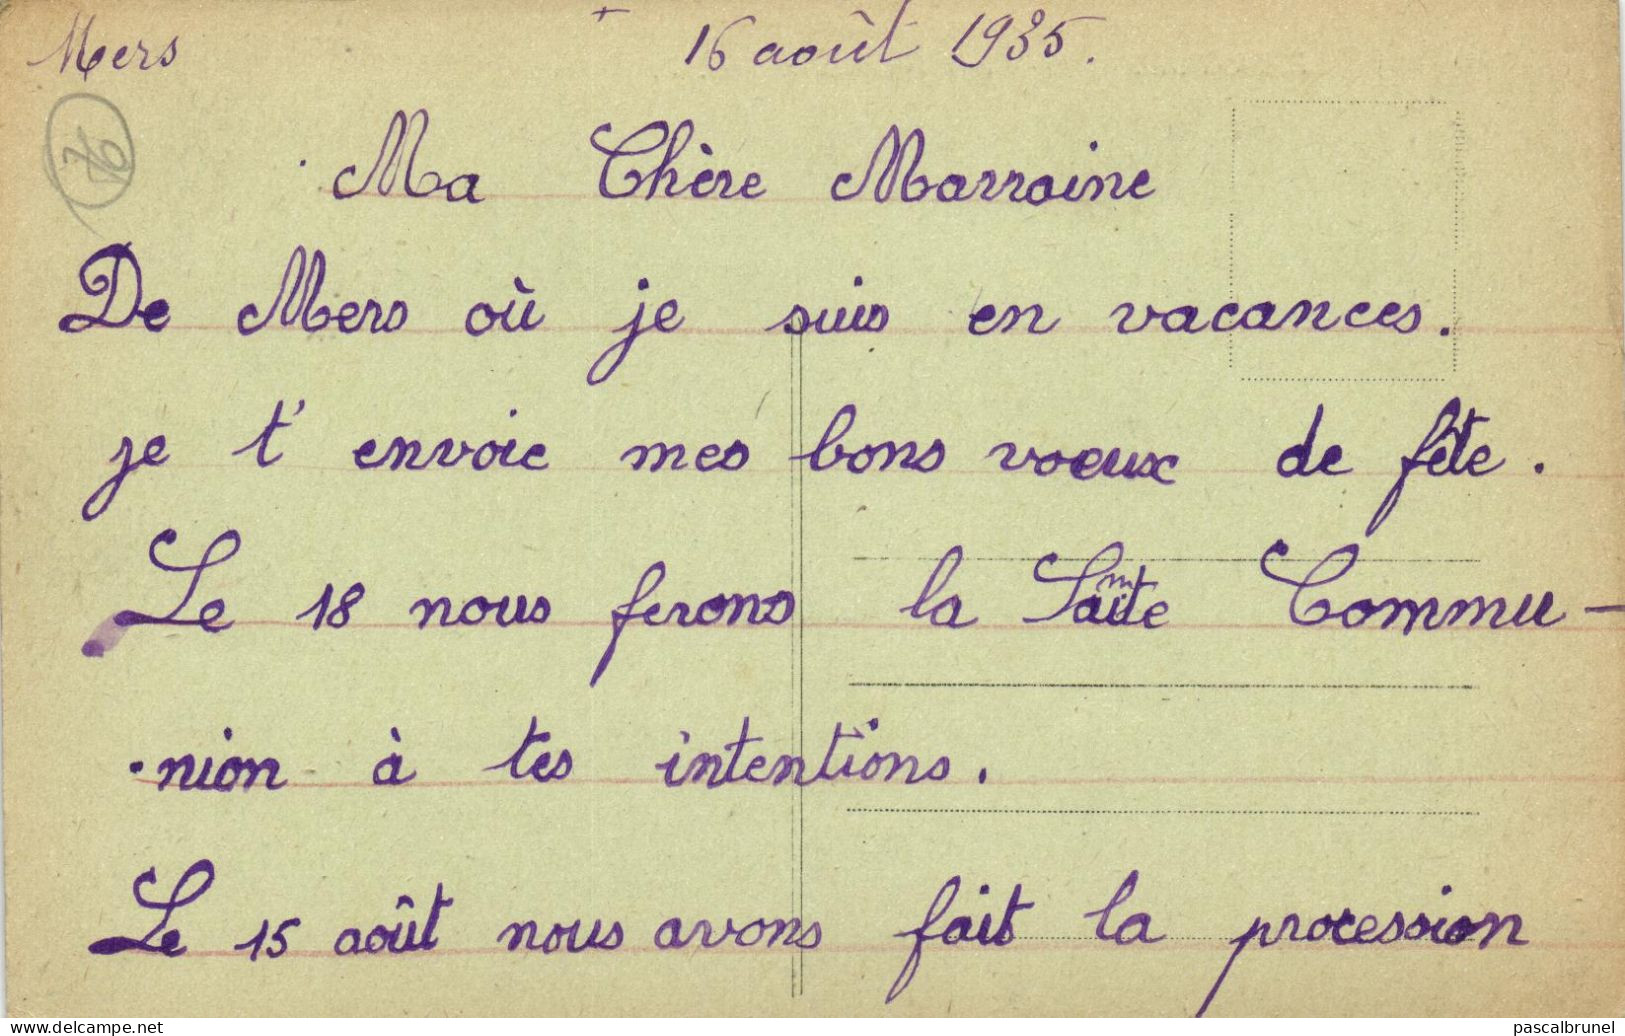 Mers + 16 août 1935.
76
Ma Chère Marraine
De Mers où je suis en vacances.
je t'envoie mes bons voeux de fête.
Le 18 nous ferons la Sainte Commu-
nion à tes intentions.
Le 15 août nous avons fait la procession
www.delcampe.net
pascalbrunel